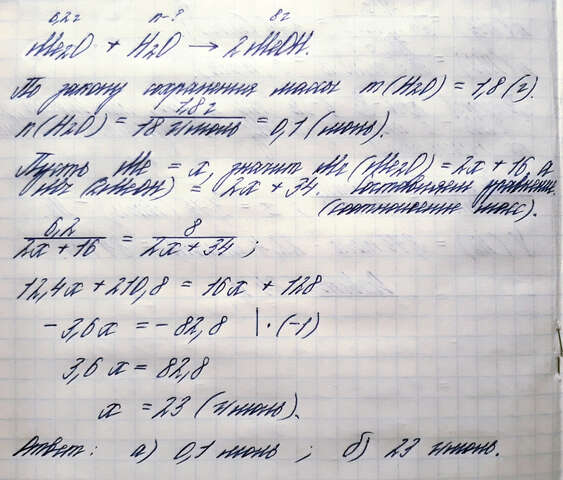 6,2г n-? 8г
Me₂O + H₂O → 2MeOH.
По закону сохранения массы m(H₂O) = 1,8(г).
n(H₂O) = 1,8г / 18 г/моль = 0,1(моль).
Пусть Me = x, значит Mr(Me₂O) = 2x + 16, а
Mr(2MeOH) = 2x + 34. Составляем уравнение
(соотношение масс).
6,2 / 2x + 16 = 8 / 2x + 34 ;
12,4x + 210,8 = 16x + 128
- 3,6x = - 82,8 | · (-1)
3,6x = 82,8
x = 23 (г/моль).
Ответ: а) 0,1 моль ; б) 23 г/моль.